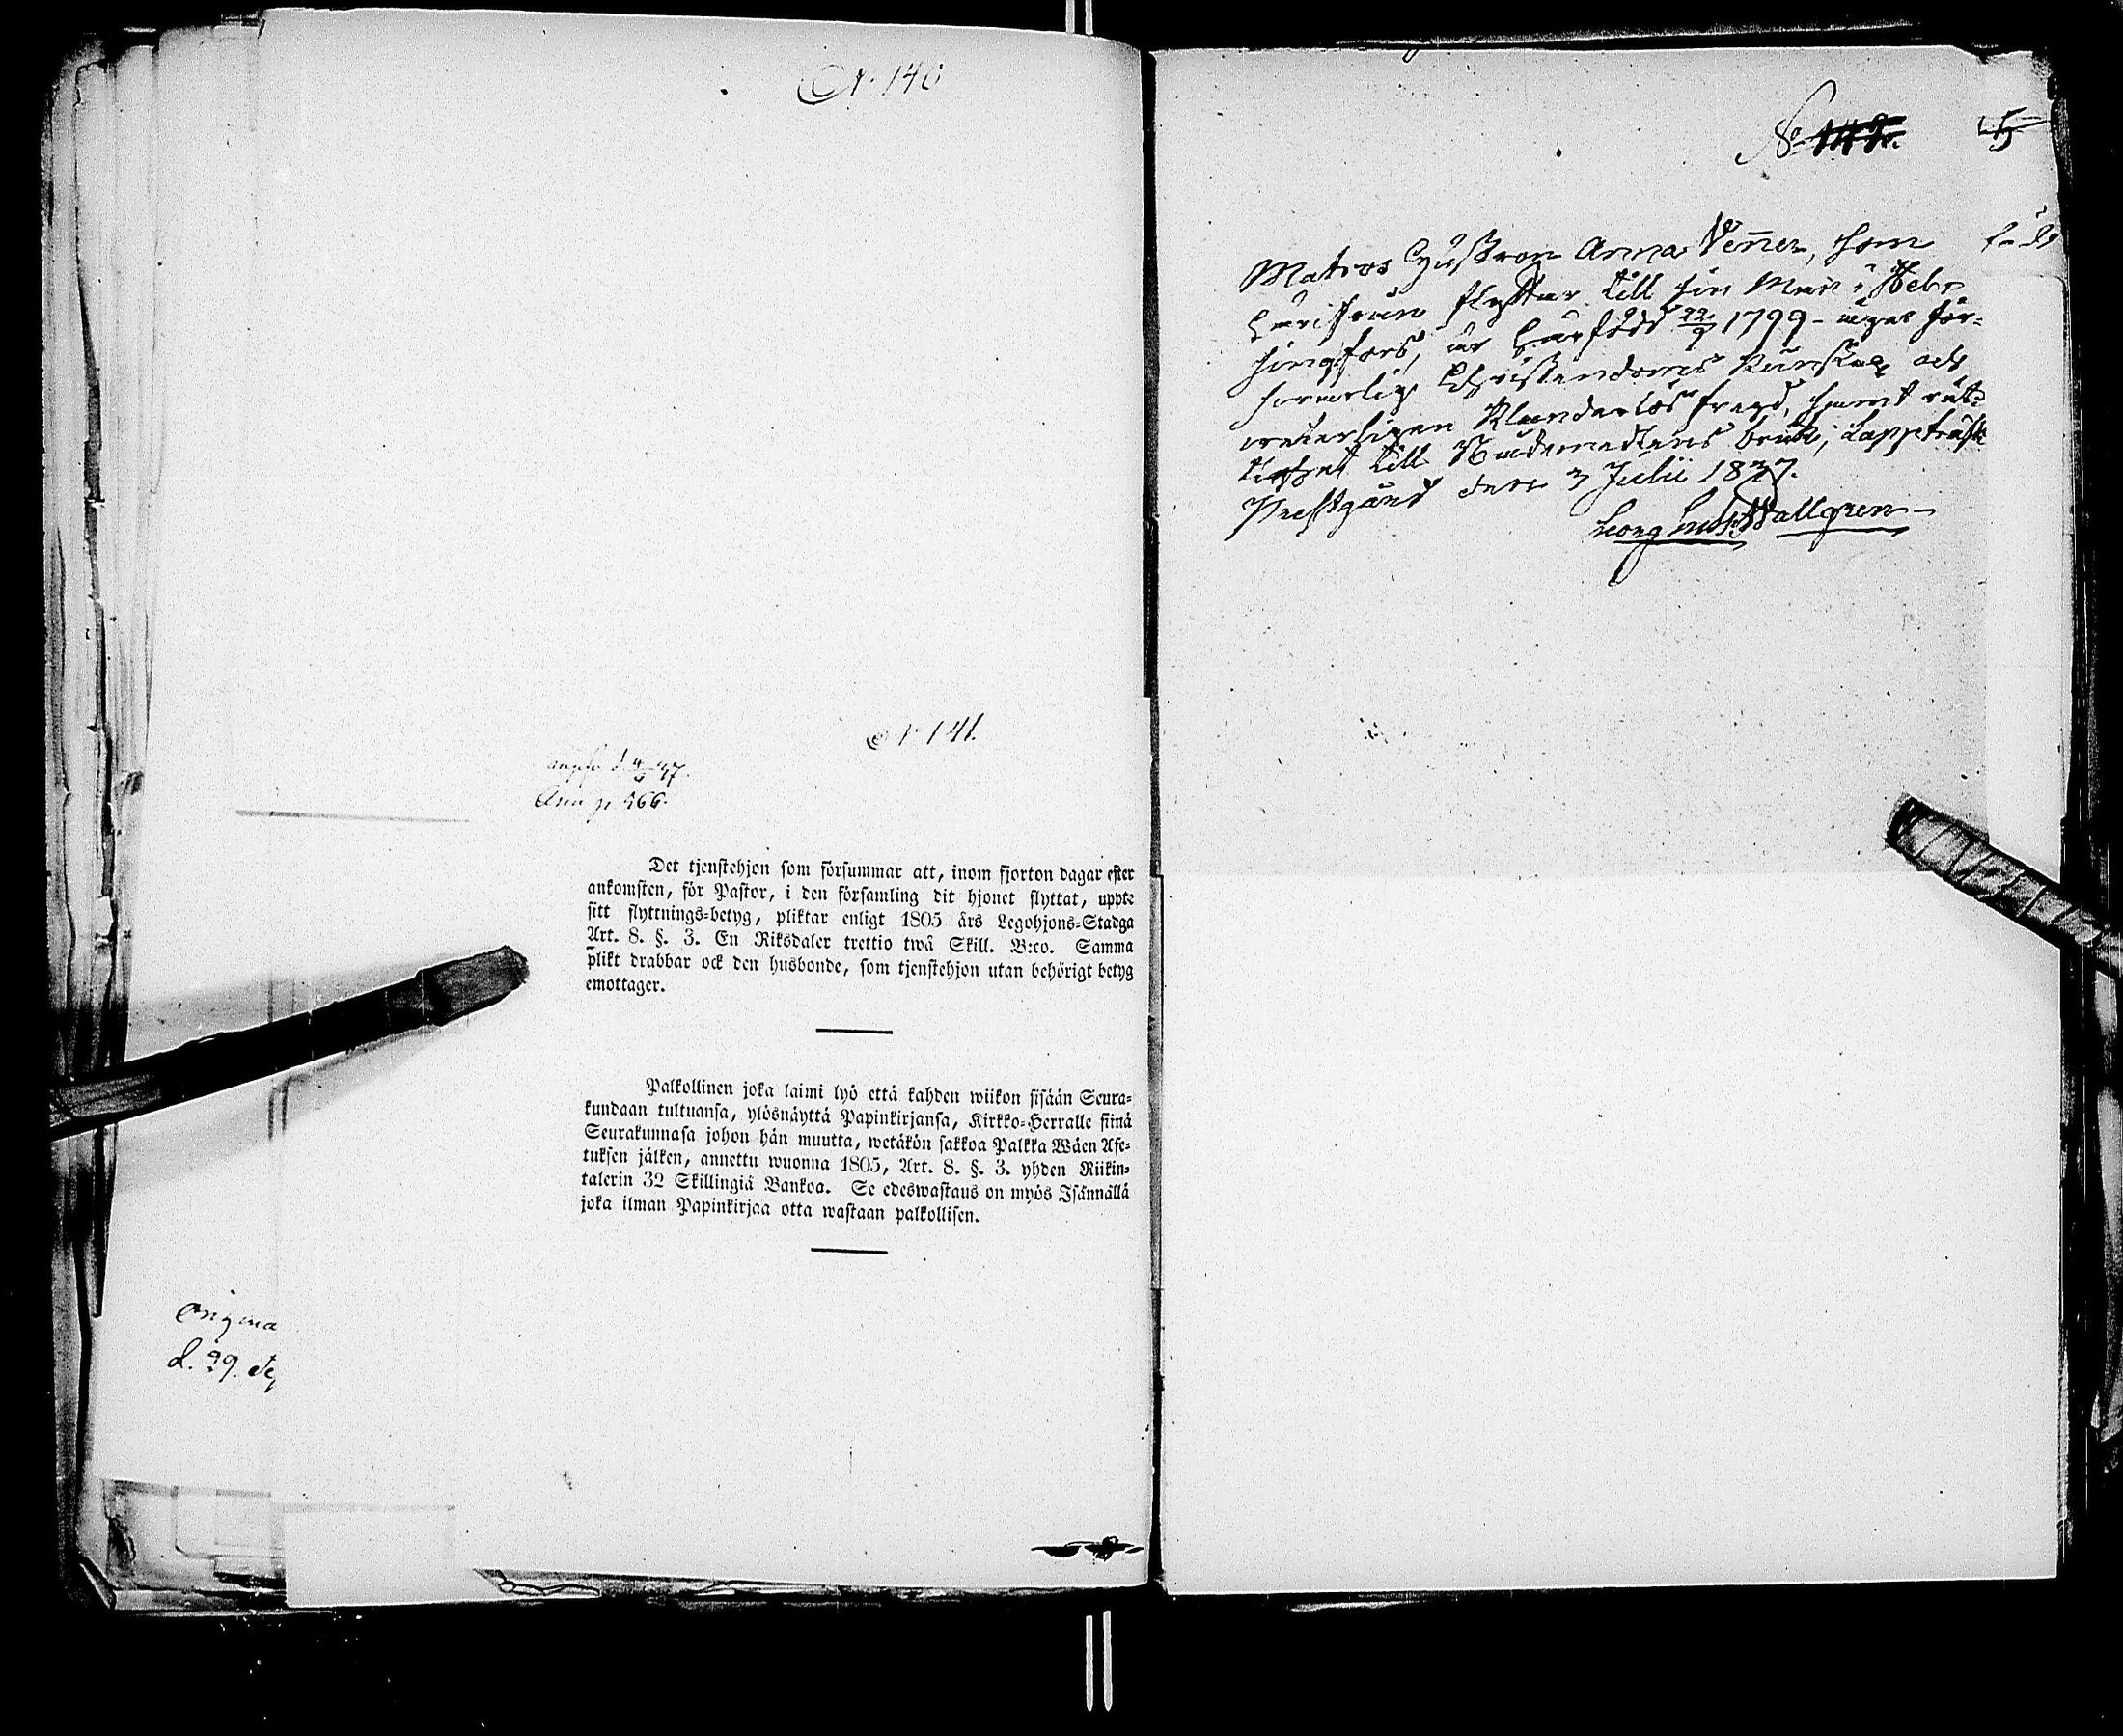 N. 140
N. 141.
anmäld d. 4/7 37.
Ann p. 466.
Det tjenstehjon som försummar att, inom fjorton dagar efter
ankomsten, för Pastor, i den församling dit hjonet flyttat, uppte
sitt flyttnings=betyg, pliktar enligt 1805 års Legohjons=Stadga
Art. 8. §. 3. En Riksdaler trettio twå Skill. B:co. Samma
plikt drabbar ock den husbonde, som tjenstehjon utan behörigt betyg
emottager.
Palkollinen joka laimi lyö että kahden wiikon sisään Seura=
kundaan tultuansa, ylösnäyttä Papinkirjansa, Kirkko=Herralle siinä
Seurakunnasa johon hän muutta, wetäkön sakkoa Palkka Wäen Ase=
tuksen jälken, annettu wuonna 1805, Art. 8. §. 3. yhden Riikin=
talerin 32 Skillingiä Bankoa. Se edeswastaus on myös Isännällä
joka ilman Papinkirjaa otta wastaan palkollisen.
Origina
d. 29. Sep
No 142.
5
Matros Hustron Anna Venner, som
härifrån flyttar till sin Man i Hel=
singfors, är härfödd 22/9 1799 - äger för=
svarlig Christendoms kunskap och
orden Klanderlös frägd, samt rät=
tighet till Nådemedlens bruk; Lappträsk
Prestgård den 3 Julii 1837.
Georg Wallgren